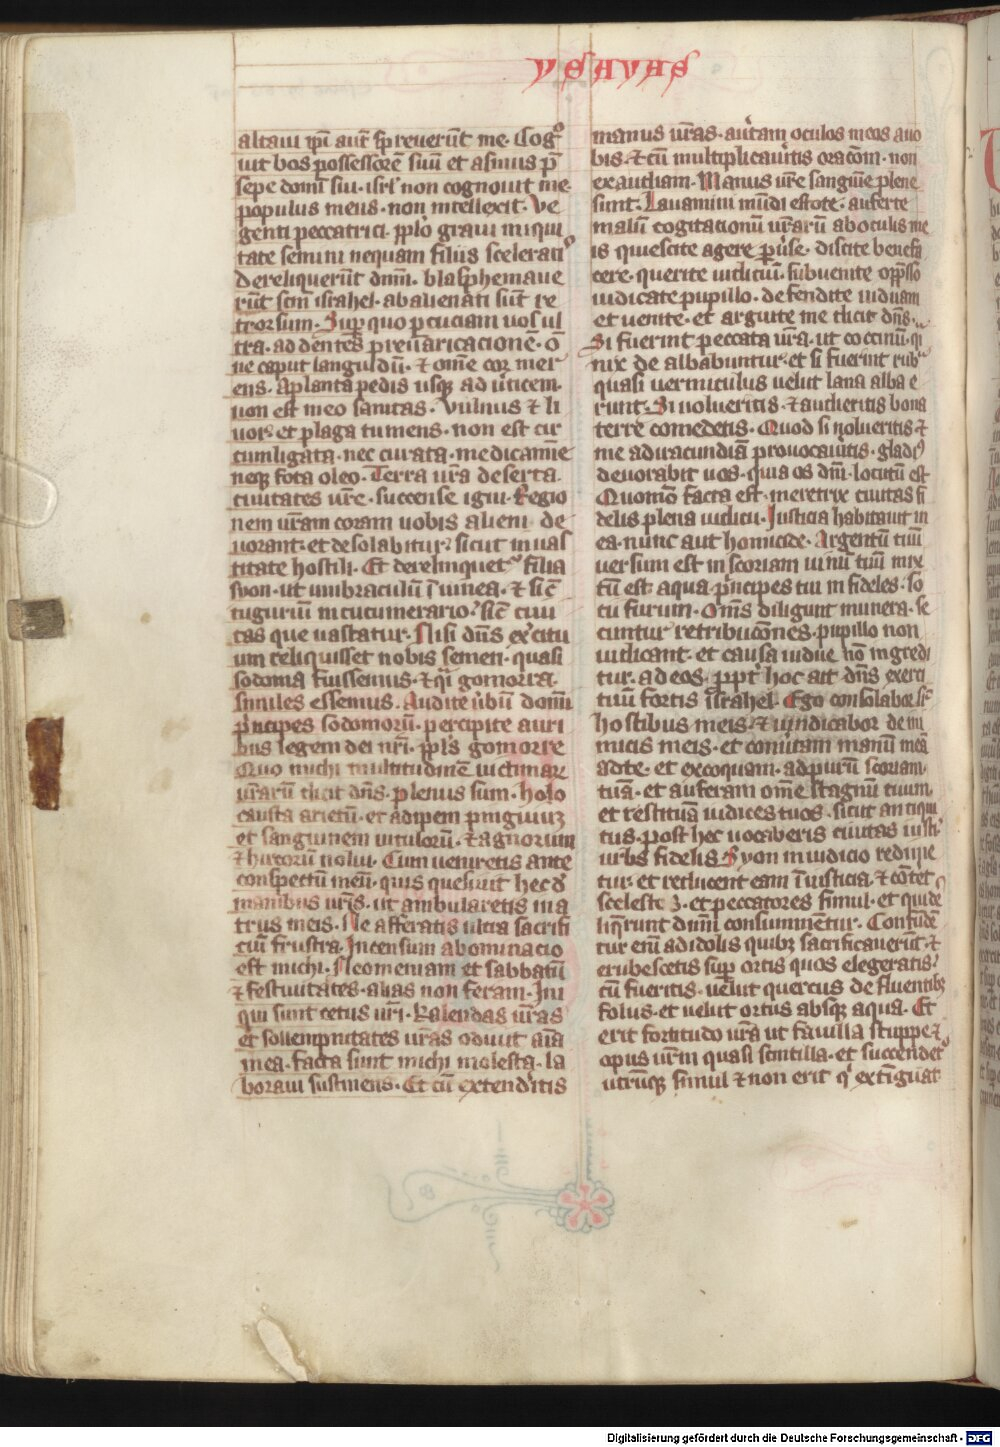 ysayas
altaui ip̄i aut̄ sp̄reuerūt me. Cogͦ
uit bos possessorē suū et asinus p̄
sepe domī sui. isrl' non cognouit me.
populus meus. non intellexit. Ve
genti peccatrici. pp̄lo graui iniqui
tate semini nequam filiis sceleratiˢ
dereliquerūt dm̄. blasphemaue
rūt scm̄ israhel. abalienati sūt re
trorsum. Suꝑ quo ꝑcuciam uos ul
tra. addentes p̄reuaricacionē. ō
ne caput languidū. ⁊ om̄e cor mer
ens. A planta pedis usqꝫ ad u'ticem.
non est in eo sanitas. Vulnus ⁊ li
uor. et plaga tumens. non est cir
cumligata. nec curata. medicamīe
neqꝫ fota oleo. Terra ur̄a deserta.
ciuitates ur̄e. succense igni. Regio
nem ur̄am coram uobis alieni de
uorant. et desolabitur. sicut in uas
titate hostili. Et derelinquetᷣ filia
syon. ut umbraculū ī uinea. ⁊ sic̄
tugurium in cucumerario. sic̄ ciui
tas que uastatur. Nisi dn̄s ex'citu
um reliquisset nobis semen. quasi
sodoma fuissemus. ⁊ qͣi gomorra
similes essemus. Audite u'bū domī
p'ncipes sodomorū. percipite auri
bus legem dei nr̄i. pp̄ls gomorre
Quo michi multitudinē uictimarꝫ
ur̄arū dicit dn̄s. plenus sum. holo
causta arietū. et adipem pinguiuꝫ
et sanguinem uitulorū. ⁊ agnorum
⁊ hircorū nolui. Cum ueniretis ante
conspectū meū. quis quesiuit hec d'
manibus ur̄is. ut ambularetis in a
triis meis. Ne afferatis ultra sacrifi
ciū frustra. Incensum abominacio
est michi. Neomeniam et sabbatū
⁊ festiuitates. alias non feram. Ini
qui sunt cetus ur̄i. Kalendas ur̄as
et sollempnitates ur̄as odiuit aīa
mea. facta sunt michi molesta. la
boraui sustinens. Et cū extenditis
manus ur̄as. au'tam oculos meos a uo
bis. ⁊ cū multiplicau'itis oracōm. non
exaudiam. Manus ur̄e sanguīe plene
sunt. Lauamini mūdi estote. auferte
malū cogitacionū ur̄arū ab oculis me
is quiescite agere ꝑu'se. discite benefa
cere. querite iudiciū. subuenite opp̄sso
iudicate pupillo. defendite uiduam
et uenite. et arguite me dicit dn̄s.
Si fuerint peccata ur̄a. ut coccinū. qͣi
nix dealbabuntur. et si fuerint rubͣ
quasi uermiculus uelut lana alba e
runt. Si uolueritis. ⁊ audieritis bona
terre comedetis. Quod si nolueritis ⁊
me ad iracundiā prouocau'itis. gladiꝰ
deuorabit uos. quia os dn̄i locutū est
Quomō facta est meretrix ciuitas fi
delis plena iudicii. Iusticia habitauit in
ea. nunc aut homicide. Argentū tuū
uersum est in scoriam uinū tuū mix
tū est aqua. p'ncipes tui infideles. so
cii furum. Om̄s diligunt munera. se
cuntur retribucōnes. pupillo non
iudicant. et causa uidue nō ingredi
tur. ad eos. ppt' hoc ait dn̄s exerci
tuū fortis israhel. Ego consolabor sr̄
hostibus meis. ⁊ uindicabor de ini
micis meis. et conu'tam manū meā
ad te. et excoquam. ad purū scoriam
tuā. et auferam om̄e stagnū tuum.
et restituā iudices tuos. sicut antiqui
tus. post hec uocaberis ciuitas iusti.
urbs fidelis. Syon in iudicio redime
tur. et reducent eam ī iusticia. ⁊ cōtet
scelestos. et peccatores simul. et qui de
liq̄runt dnm̄ consummentur. Confūdē
tur eni ab idolis quibꝫ sacrificauerūt. ⁊
erubescetis suꝑ ortis quos elegeratis.
cū fueritis. uelut quercus defluentibꝫ
folus. et uelut ortus absqꝫ aqua. Et
erit fortitudo ur̄a ut fauilla stuppe. ⁊
opus ur̄m quasi scintilla. et succendetᷣ
utrūqꝫ simul ⁊ non erit q' extīguat.
Digitalisierung gefördert durch die Deutsche Forschungsgemeinschaft - DFG